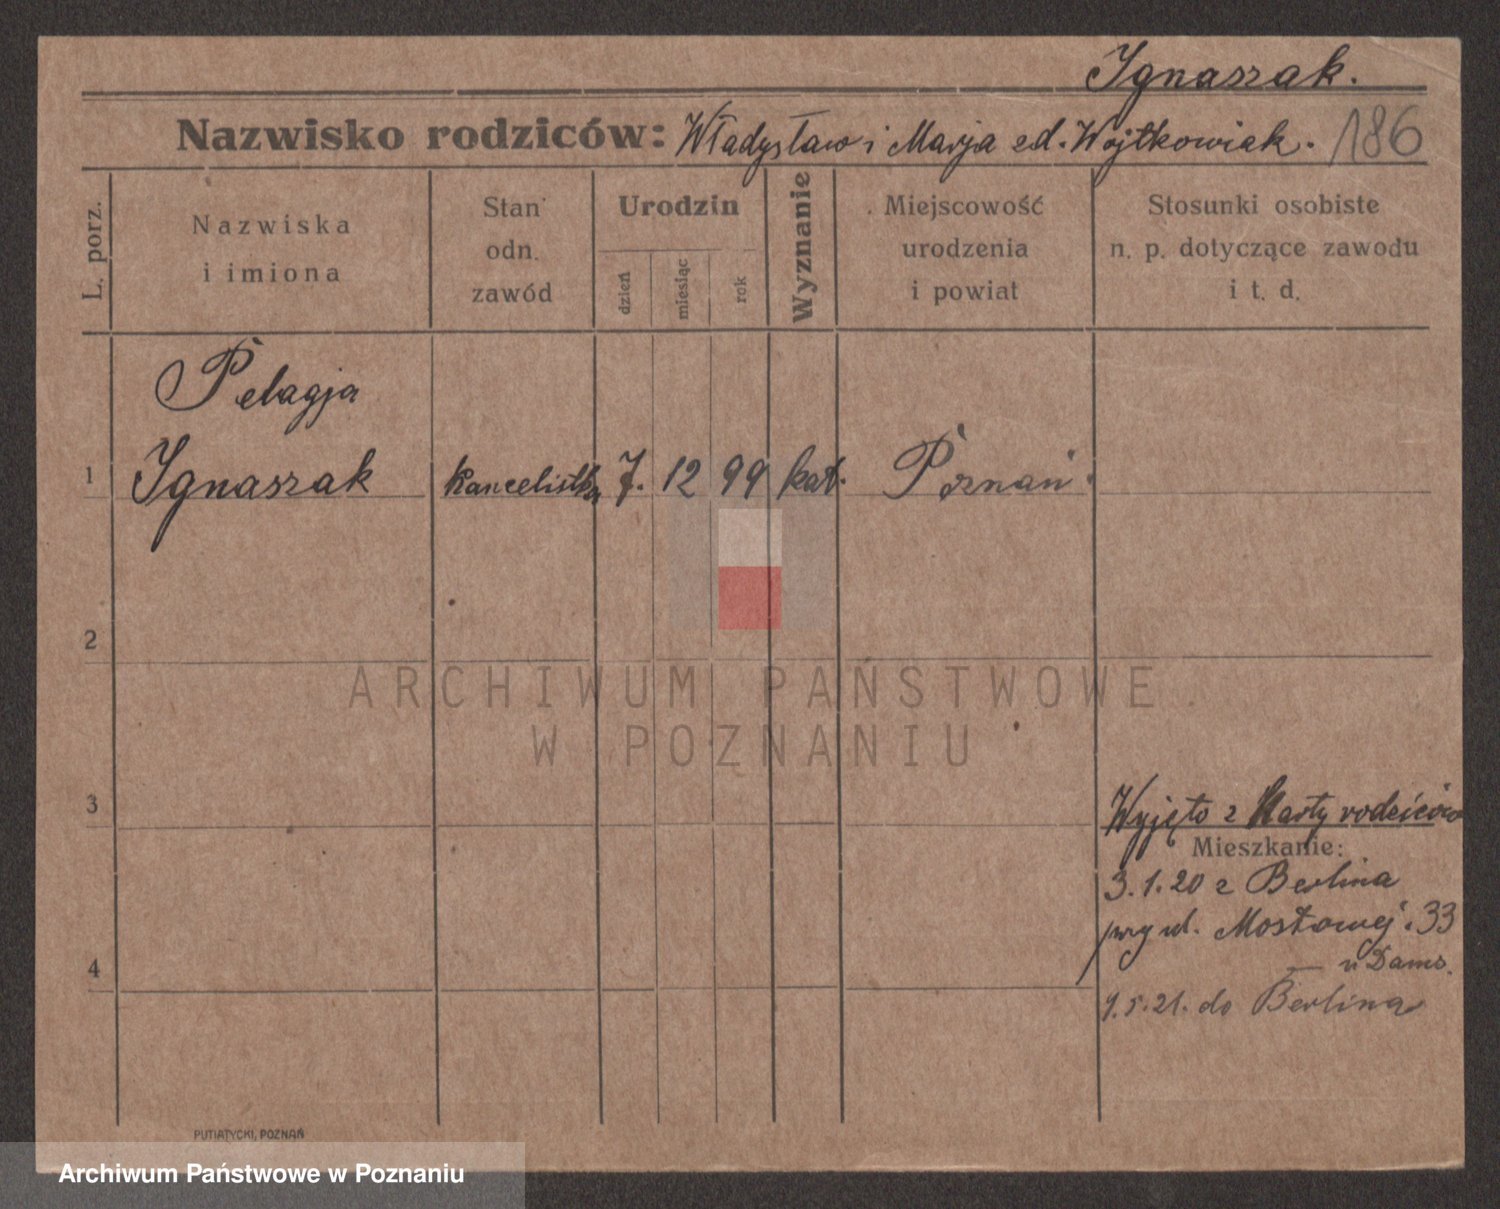 Ignaszak.
Nazwisko rodziców: Władysław i Marja zd. Wojtkowiak. 186
L. porz.
Nazwiska
i imiona
Stan
odn.
zawód
Urodzin
dzień
miesiąc
rok
Wyznanie
Miejscowość
urodzenia
i powiat
Stosunki osobiste
n. p. dotyczące zawodu
i t. d.
Pelagja
1 Ignaszak kancelistka 7. 12 99 kat. Poznań
2
ARCHIWUM PAŃSTWOWE
W POZNANIU
3
Wyjęto z Karty rodziców
Mieszkanie:
3.1.20 z Berlina
przy ul. Mostowej 33
4
u Dams.
9.5.21. do Berlina
PUTIATYCKI, POZNAŃ
Archiwum Państwowe w Poznaniu